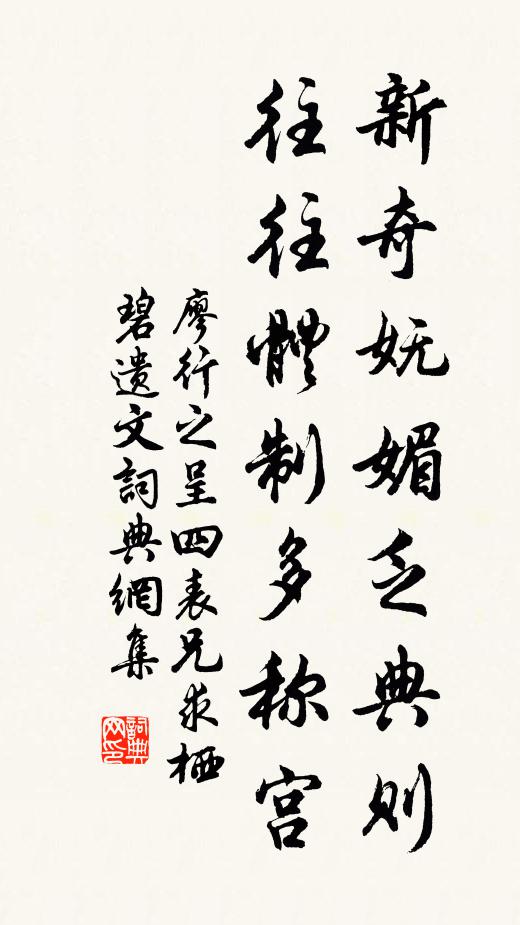 新奇妩媚乏典则
往往體制多称宫
廖行之呈四表兄求栖
碧遗文詞典網集
詞典
网印